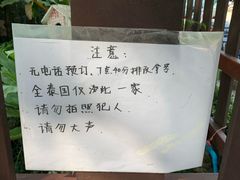 注意:
无电话预订、7点40分排队拿号
全泰国仅次此一家
请勿拍照犯人
请勿大声.